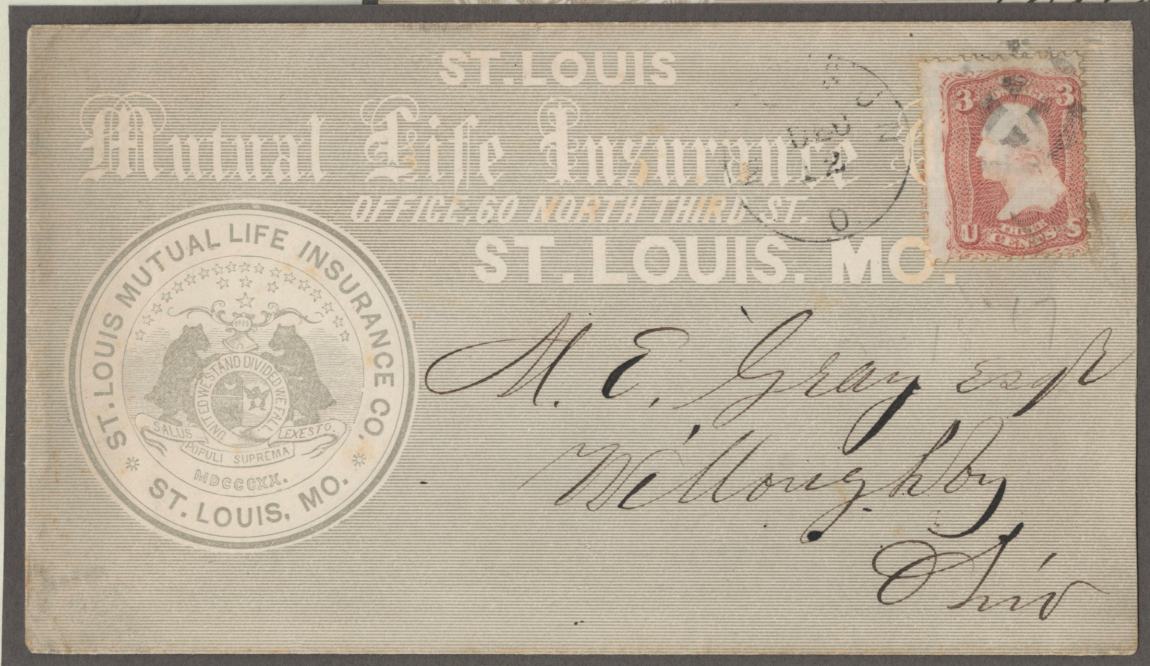 ST. LOUIS
Mutual Life Insurance
OFFICE, 60 NORTH THIRD ST.
ST. LOUIS. MO.
DEC
12
O
3 3
U S
CENTS
ST. LOUIS MUTUAL LIFE INSURANCE CO.
UNITED WE STAND DIVIDED WE FALL
SALUS POPULI SUPREMA LEX ESTO.
MDCCCXX.
ST. LOUIS, MO.
M. E. Gray esqr
Willoughby
Ohio